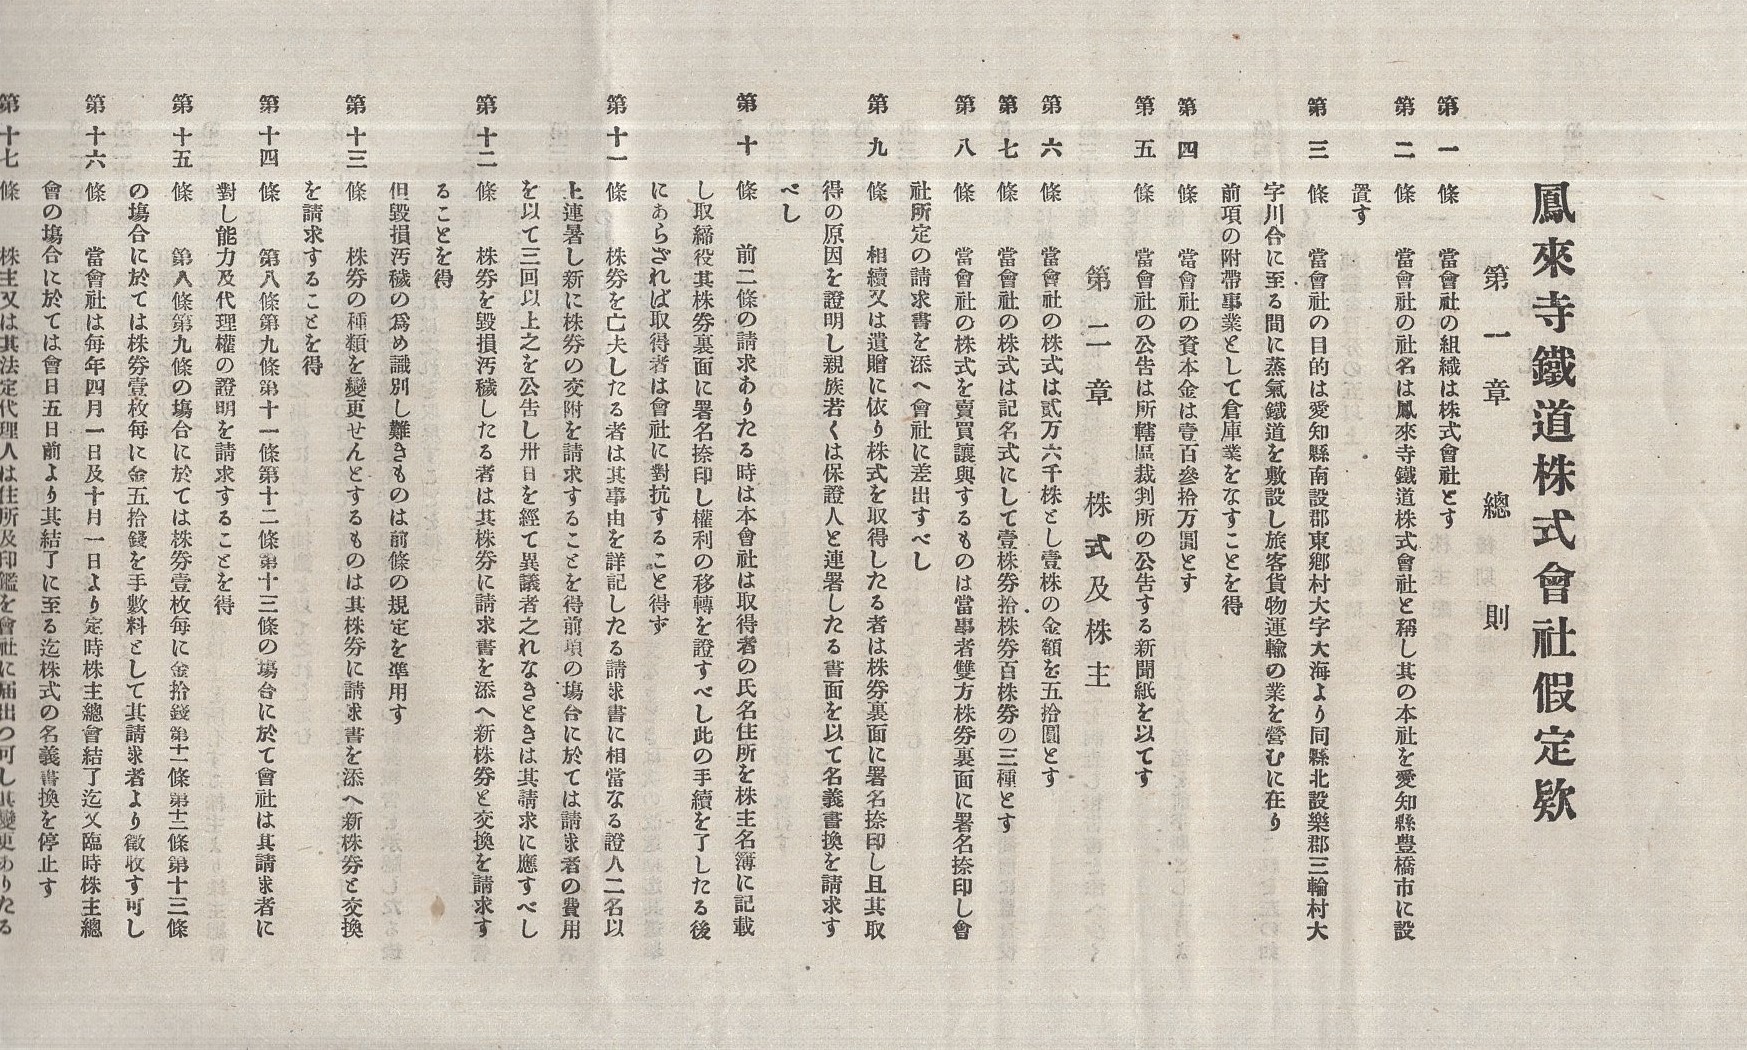 鳳來寺鐵道株式會社假定欵
第一章　總則
第一條　當會社の組織は株式會社とす
第二條　當會社の社名は鳳來寺鐵道株式會社と稱し其の本社を愛知縣豊橋市に設
置す
第三條　當會社の目的は愛知縣南設郡東鄕村大字大海より同縣北設樂郡三輪村大
字川合に至る間に蒸氣鐵道を敷設し旅客貨物運輸の業を營むに在り
前項の附帶事業として倉庫業をなすことを得
第四條　當會社の資本金は壹百參拾万圓とす
第五條　當會社の公告は所轄區裁判所の公告する新聞紙を以てす
第二章　株式及株主
第六條　當會社の株式は貳万六千株とし壹株の金額を五拾圓とす
第七條　當會社の株式は記名式にして壹株券拾株券百株券の三種とす
第八條　當會社の株式を賣買讓與するものは當事者雙方株券裏面に署名捺印し會
社所定の請求書を添へ會社に差出すべし
第九條　相續又は遺贈に依り株式を取得したる者は株券裏面に署名捺印し且其取
得の原因を證明し親族若くは保證人と連署したる書面を以て名義書換を請求す
べし
第十條　前二條の請求ありたる時は本會社は取得者の氏名住所を株主名簿に記載
し取締役其株券裏面に署名捺印し權利の移轉を證すべし此の手續を了したる後
にあらざれば取得者は會社に對抗すること得ず
第十一條　株券を亡失したる者は其事由を詳記したる請求書に相當なる證人二名以
上連署し新に株券の交附を請求することを得前項の塲合に於ては請求者の費用
を以て三回以上之を公告し卅日を經て異議者之れなきときは其請求に應すべし
第十二條　株券を毀損汚穢したる者は其株券に請求書を添へ新株券と交換を請求す
ることを得
但毀損汚穢の爲め識別し難きものは前條の規定を準用す
第十三條　株券の種類を變更せんとするものは其株券に請求書を添へ新株券と交換
を請求することを得
第十四條　第八條第九條第十一條第十二條第十三條の塲合に於て會社は其請求者に
對し能力及代理權の證明を請求することを得
第十五條　第八條第九條の塲合に於ては株券壹枚毎に金拾錢第十一條第十二條第十三條
の塲合に於ては株券壹枚毎に金五拾錢を手數料として其請求者より徵收す可し
第十六條　當會社は毎年四月一日及十月一日より定時株主總會結了迄又臨時株主總
會の塲合に於ては會日五日前より其結了に至る迄株式の名義書換を停止す
第十七條　株主又は其法定代理人は住所及印鑑を會社に届出つ可し其變更ありたる